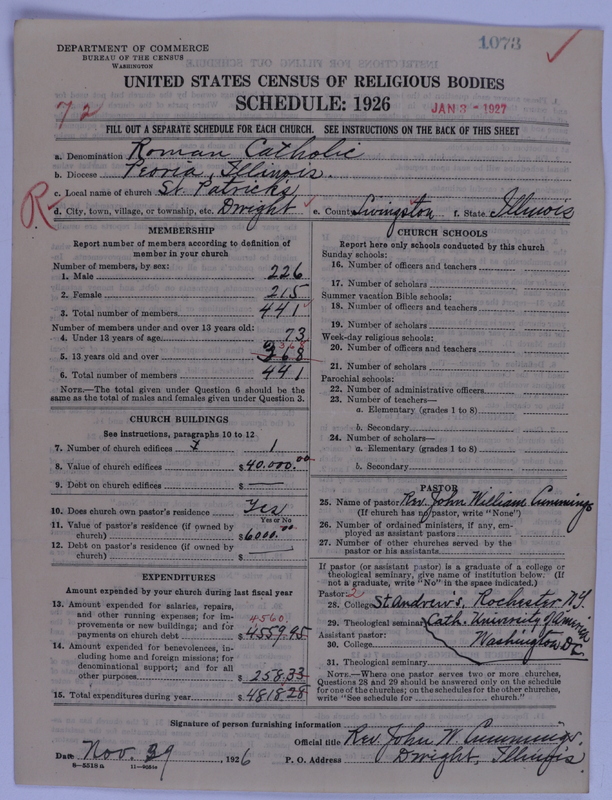 1073
DEPARTMENT OF COMMERCE
BUREAU OF THE CENSUS
WASHINGTON
UNITED STATES CENSUS OF RELIGIOUS BODIES
SCHEDULE: 1926
JAN 3 - 1927
72
FILL OUT A SEPARATE SCHEDULE FOR EACH CHURCH. SEE INSTRUCTIONS ON THE BACK OF THIS SHEET
a. Denomination Roman Catholic
b. Diocese Peoria, Illinois.
c. Local name of church St. Patricks
R
d. City, town, village, or township, etc. Dwight e. County Livingston f. State Illinois
MEMBERSHIP
Report number of members according to definition of
member in your church
Number of members, by sex:
1. Male 226
2. Female 215
3. Total number of members 441
Number of members under and over 13 years old:
4. Under 13 years of age 73
5. 13 years old and over 368
6. Total number of members 441
NOTE.—The total given under Question 6 should be the
same as the total of males and females given under Question 3.
CHURCH BUILDINGS
See instructions, paragraphs 10 to 12
7. Number of church edifices 1
8. Value of church edifices $40.000.00
9. Debt on church edifices $
10. Does church own pastor's residence Yes
Yes or No
11. Value of pastor's residence (if owned by
church) $6000.00
12. Debt on pastor's residence (if owned by
church) $
EXPENDITURES
Amount expended by your church during last fiscal year
13. Amount expended for salaries, repairs,
and other running expenses; for im-
provements or new buildings; and for
payments on church debt $4559.95
4560
14. Amount expended for benevolences, in-
cluding home and foreign missions; for
denominational support; and for all
other purposes $258.33
15. Total expenditures during year $4818.28
CHURCH SCHOOLS
Report here only schools conducted by this church
Sunday schools:
16. Number of officers and teachers
17. Number of scholars
Summer vacation Bible schools:
18. Number of officers and teachers
19. Number of scholars
Week-day religious schools:
20. Number of officers and teachers
21. Number of scholars
Parochial schools:
22. Number of administrative officers
23. Number of teachers—
a. Elementary (grades 1 to 8)
b. Secondary
24. Number of scholars—
a. Elementary (grades 1 to 8)
b. Secondary
PASTOR
25. Name of pastor Rev. John William Cummings
(If church has no pastor, write "None")
26. Number of ordained ministers, if any, em-
ployed as assistant pastors
27. Number of other churches served by the
pastor or his assistants
If pastor (or assistant pastor) is a graduate of a college or
theological seminary, give name of institution below. (If
not a graduate, write "No" in the space indicated.)
Pastor: 2
28. College St Andrew's, Rochester N.Y.
29. Theological seminary Cath. University of America
Assistant pastor: Washington D.C.
30. College
31. Theological seminary
NOTE.—Where one pastor serves two or more churches,
Questions 28 and 29 should be answered only on the schedule
for one of the churches; on the schedules for the other churches,
write "See schedule for church."
Signature of person furnishing information
Official title Rev. John W. Cummings.
Date Nov. 29, 1926 P. O. Address Dwight, Illinois
8-5518a